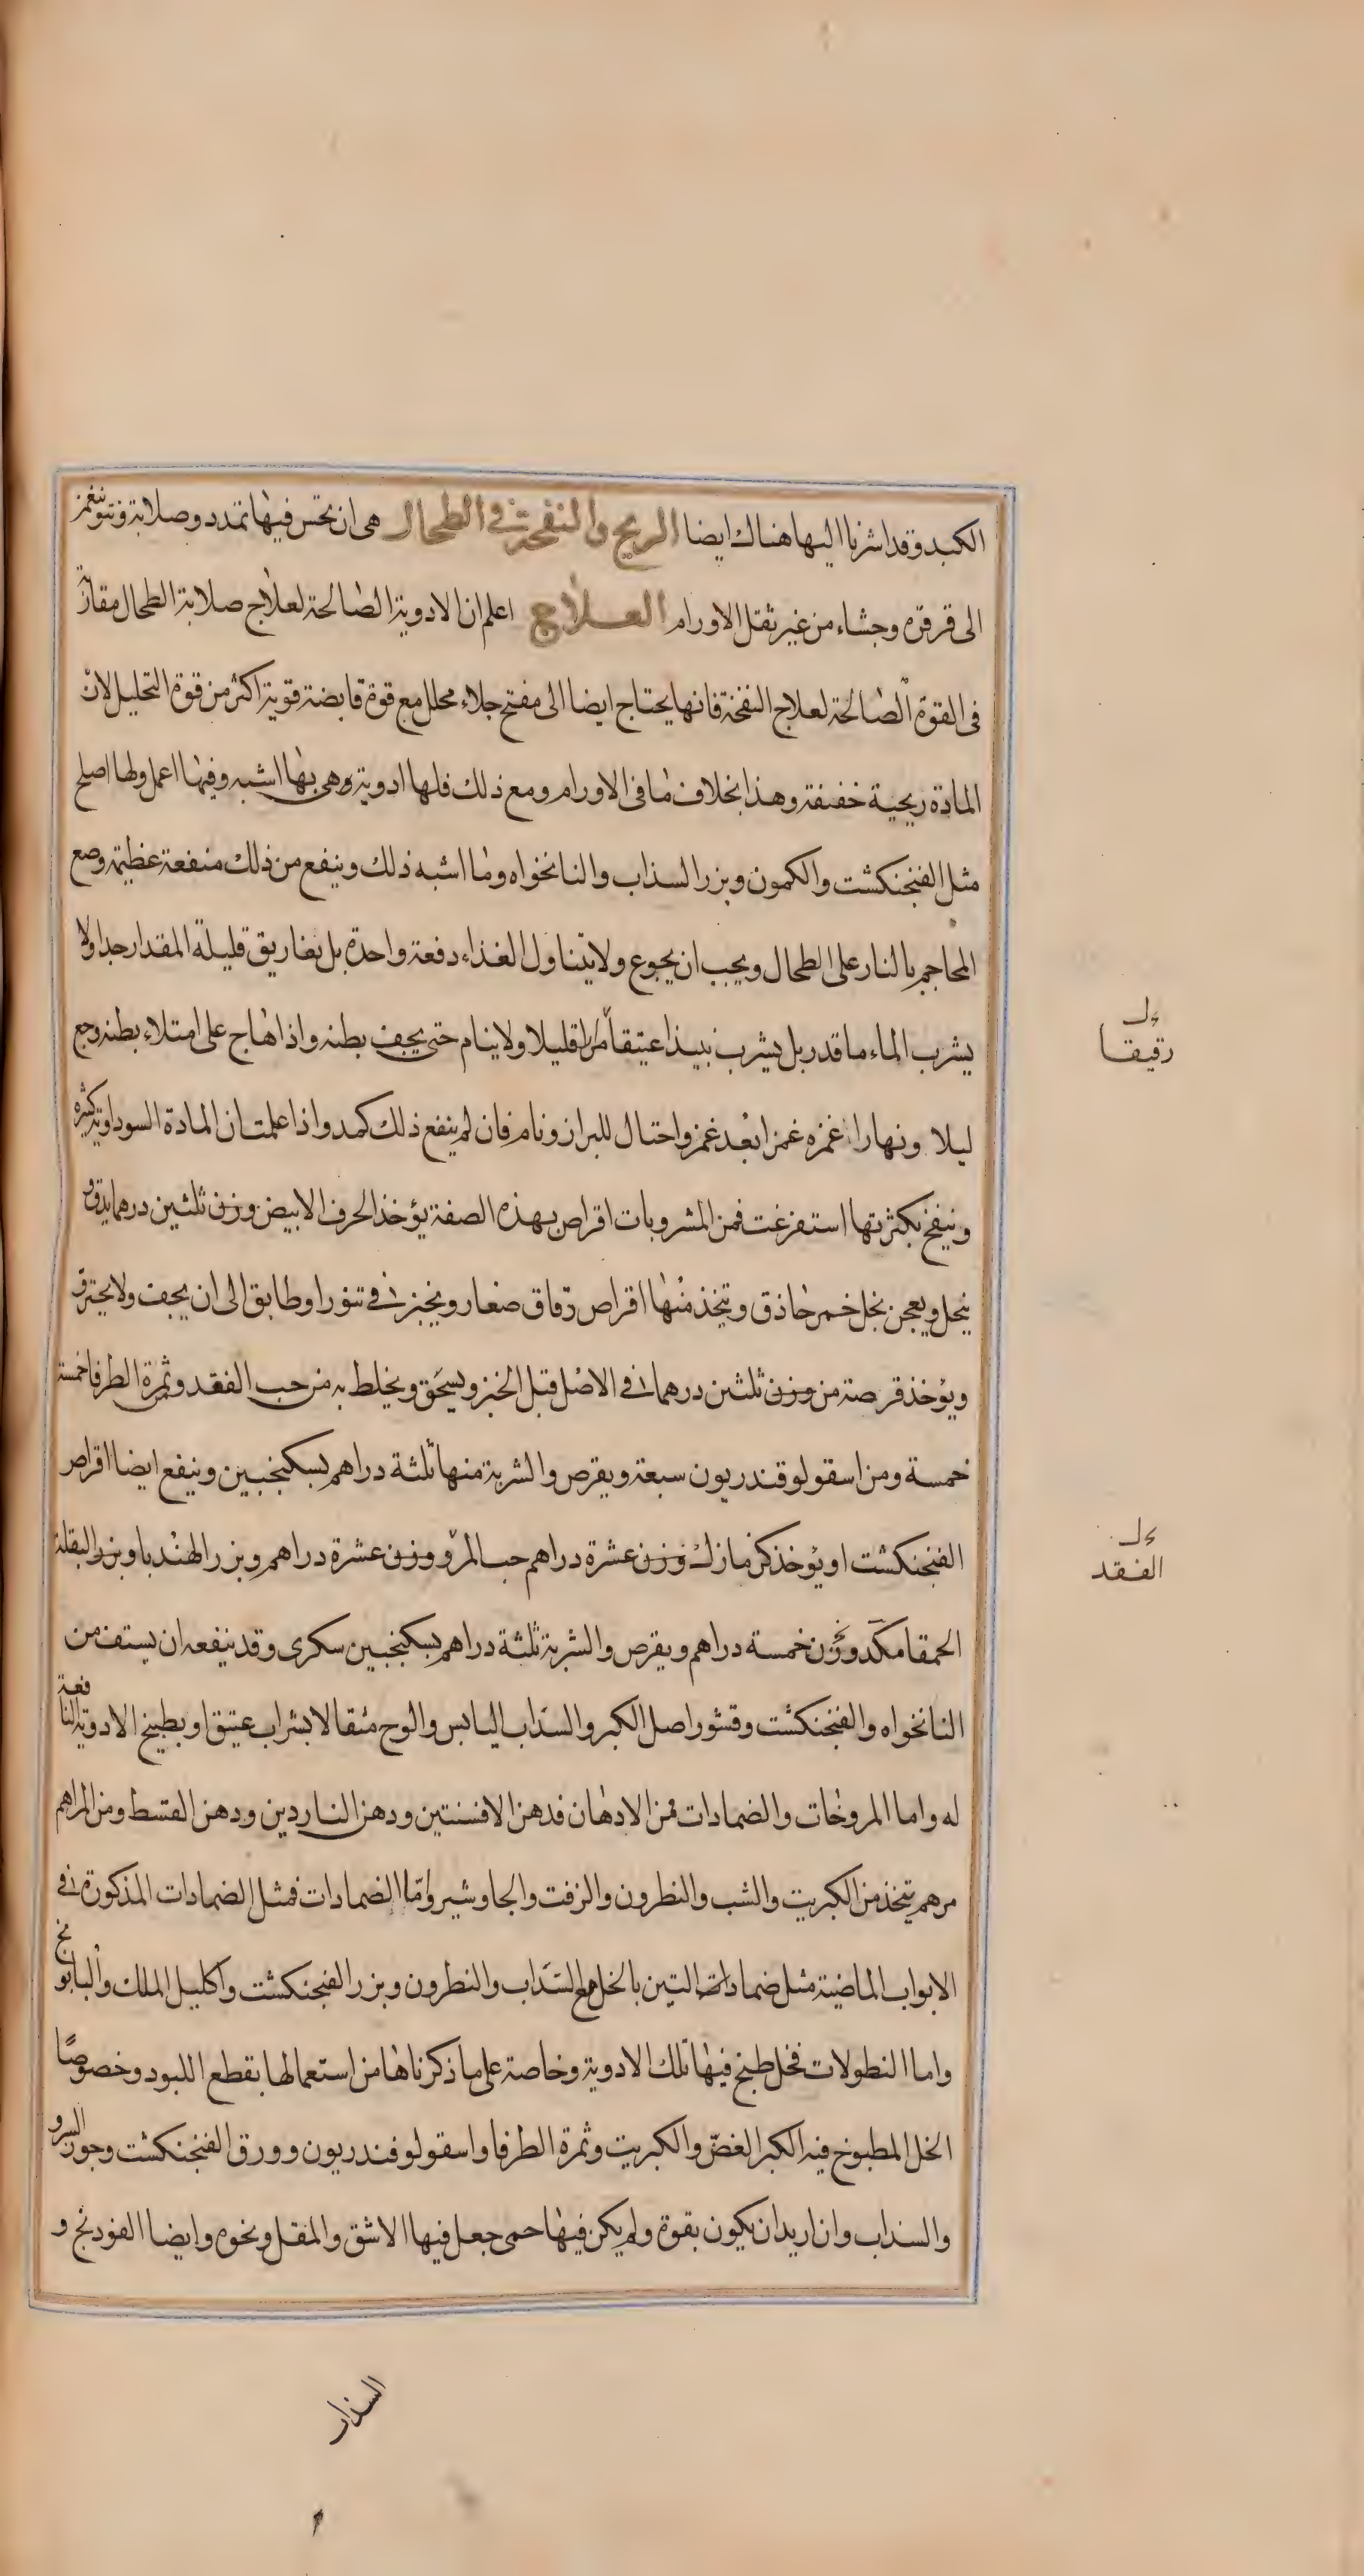 الكبد وقد اشرنا اليها هناك ايضا الريح والنفخة فى الطحال هى ان يحس فيها تمدد وصلابة ونتو ينغمز
الى قرقرة وجشاء من غير ثقل الاورام العلاج اعلم ان الادوية الصالحة لعلاج صلابة الطحال مقاربة
فى القوة الصالحة لعلاج النفخة فانها يحتاج ايضا الى مفتح جلاء محلل مع قوة قابضة قوية اكثر من قوة التحليل لان
المادة ريحية خفيفة وهذا بخلاف ما فى الاورام ومع ذلك فلها ادوية وهى بها اشبه وفيها اعمل ولها اصلح
مثل الفنجنكشت والكمون وبزر السذاب والنانخواه وما اشبه ذلك وينفع من ذلك منفعة عظيمة وضع
المحاجم بالنار على الطحال ويجب ان يجوع ولا يتناول الغذاء دفعة واحدة بل بتفاريق قليلة المقدار جدا ولا
يشرب الماء ما قدر بل يشرب نبيذا عتيقا مرا قليلا ولا ينام حتى يجف بطنه واذا هاج على امتلاء بطنه وجع
ليلا ونهارا غمزه غمزا بعد غمز واحتال للبراز ونام فان لم ينفع ذلك كمد واذا علمت ان المادة السوداوية كثيرة
وينفخ بكثرتها استفرغت فمن المشروبات اقراص بهذه الصفة يؤخذ الحرف الابيض وزن ثلثين درهما يدق و
ينخل ويعجن بخل خمر حاذق ويتخذ منها اقراص رقاق صغار ويخبز فى تنور او طابق الى ان يجف ولا يحترق
ويؤخذ قرصة من وزن ثلثين درهما فى الاصل قبل الخبز ويسحق ويخلط به من حب الفقد وثمرة الطرفا خمسة
خمسة ومن اسقولوقندريون سبعة ويقرص والشربة منها ثلثة دراهم بسكنجبين وينفع ايضا اقراص
الفنجنكشت او يؤخذ كزمازك وزن عشرة دراهم حب المرو وزن عشرة دراهم وبزر الهندبا وبزر البقلة
الحمقا مكد وزن خمسة دراهم ويقرص والشربة ثلثة دراهم بسكنجبين سكرى وقد ينفعه ان يستف من
النانخواه والفنجنكشت وقشور اصل الكبر والسذاب اليابس والوج مثقالا بشراب عتيق او بطبيخ الادوية النافعة
له واما المروخات والضمادات فمن الادهان فدهن الافسنتين ودهن الناردين ودهن القسط ومن المراهم
مرهم يتخذ من الكبريت والشب والنطرون والزفت والجاوشير واما الضمادات فمثل الضمادات المذكورة فى
الابواب الماضية مثل ضمادات التين بالخل مع السذاب والنطرون وبزر الفنجنكشت واكليل الملك والبابونج
واما النطولات فخل طبخ فيها تلك الادوية وخاصة على ما ذكرناها من استعمالها بقطع اللبود وخصوصا
الخل المطبوخ فيه الكبر الغض والكبريت وثمرة الطرفا واسقولوفندريون وورق الفنجنكشت وجوز السرو
والسذاب وان اريد ان يكون بقوة ولم يكن فيها حمى جعل فيها الاشق والمقل ونحوه وايضا الفودنج و
رقيقا
الفقد
السذاب